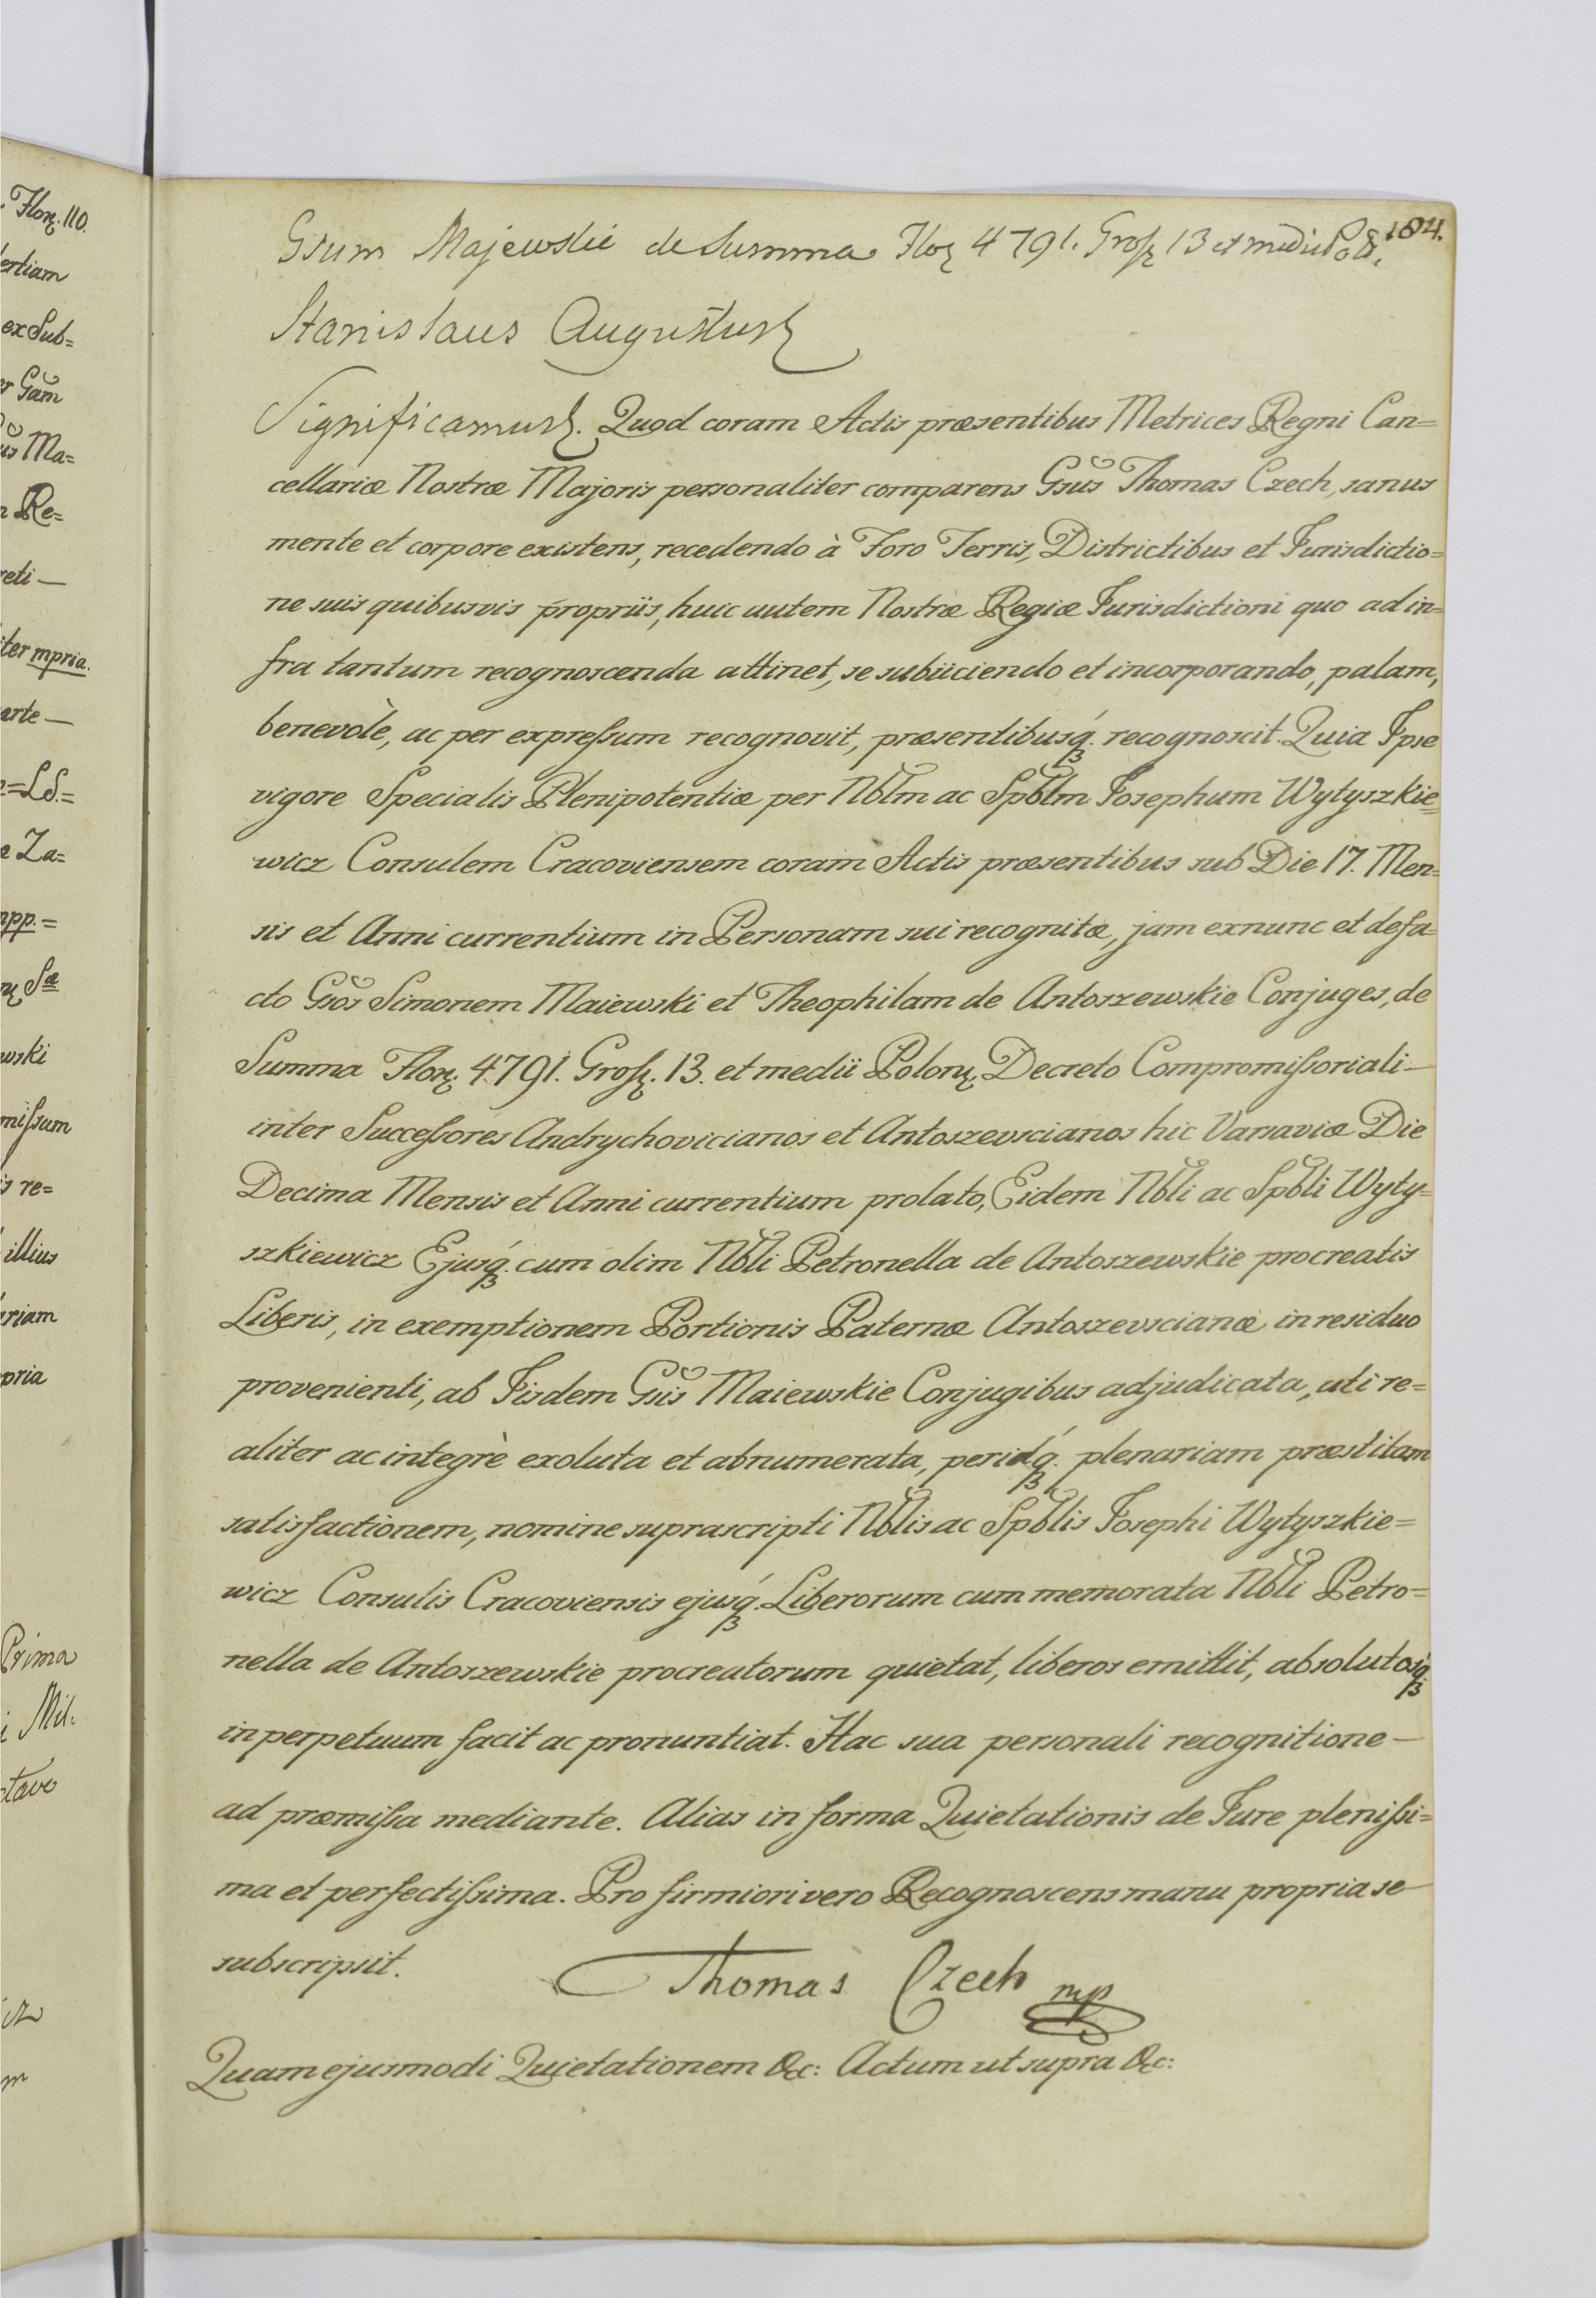 184.
Gsum Majewskie de Summa Flor. 4791. Gross. 13 et medii Pol.
Stanislaus Augustus
Significamus. Quod coram Actis præsentibus Metrices Regni Can=
cellariæ Nostræ Majoris personaliter comparens Gsus Thomas Czech, sanus
mente et corpore existens, recedendo à Foro Terris, Districtibus et Jurisdictio=
ne suis quibusvis propriis, huic autem Nostræ Regiæ Jurisdictioni quo ad in=
fra tantum recognoscenda attinet, se subiiciendo et incorporando, palam,
benevolè, ac per expressum recognovit, præsentibusq́. recognoscit. Quia Ipse
vigore Specialis Plenipotentiæ per Nblm ac Spblm Josephum Wytyszkie=
wicz Consulem Cracoviensem coram Actis præsentibus sub Die 17. Men=
sis et Anni currentium in Personam sui recognitæ, jam exnunc et defa=
cto Gsos Simonem Maiewski et Theophilam de Antoszewskie Conjuges, de
Summa Flor. 4791. Gross. 13. et medii Polon. Decreto Compromissoriali—
inter Successores Andrychovicianos et Antoszevscianos hic Varsaviæ Die
Decima Mensis et Anni currentium prolato, Eidem Nbli ac Spbli Wyty=
szkiewicz Ejusq́. cum olim Nbli Petronella de Antoszewskie procreatis
Liberis, in exemptionem Portionis Paternæ Antoszevscianæ in residuo
provenienti, ab Iisdem Gsis Maiewskie Conjugibus adjudicata, uti re=
aliter ac integrè exoluta et abnumerata, peridq́. plenariam præstitam
satisfactionem, nomine suprascripti Nblis ac Spblis Josephi Wytyszkie=
wicz Consulis Cracoviensis ejusq́. Liberorum cum memorata Nbli Petro=
nella de Antoszewskie procreatorum quietat, liberos emittit, absolutosq́.
in perpetuum facit ac pronuntiat. Hac sua personali recognitione—
ad præmissa mediante. Alias in forma Quietationis de Jure plenissi=
ma et perfectissima. Pro firmiori vero Recognoscens manu propria se
subscripsit. Thomas Czech mp
Quam ejusmodi Quietationem &c: Actum ut supra &c: